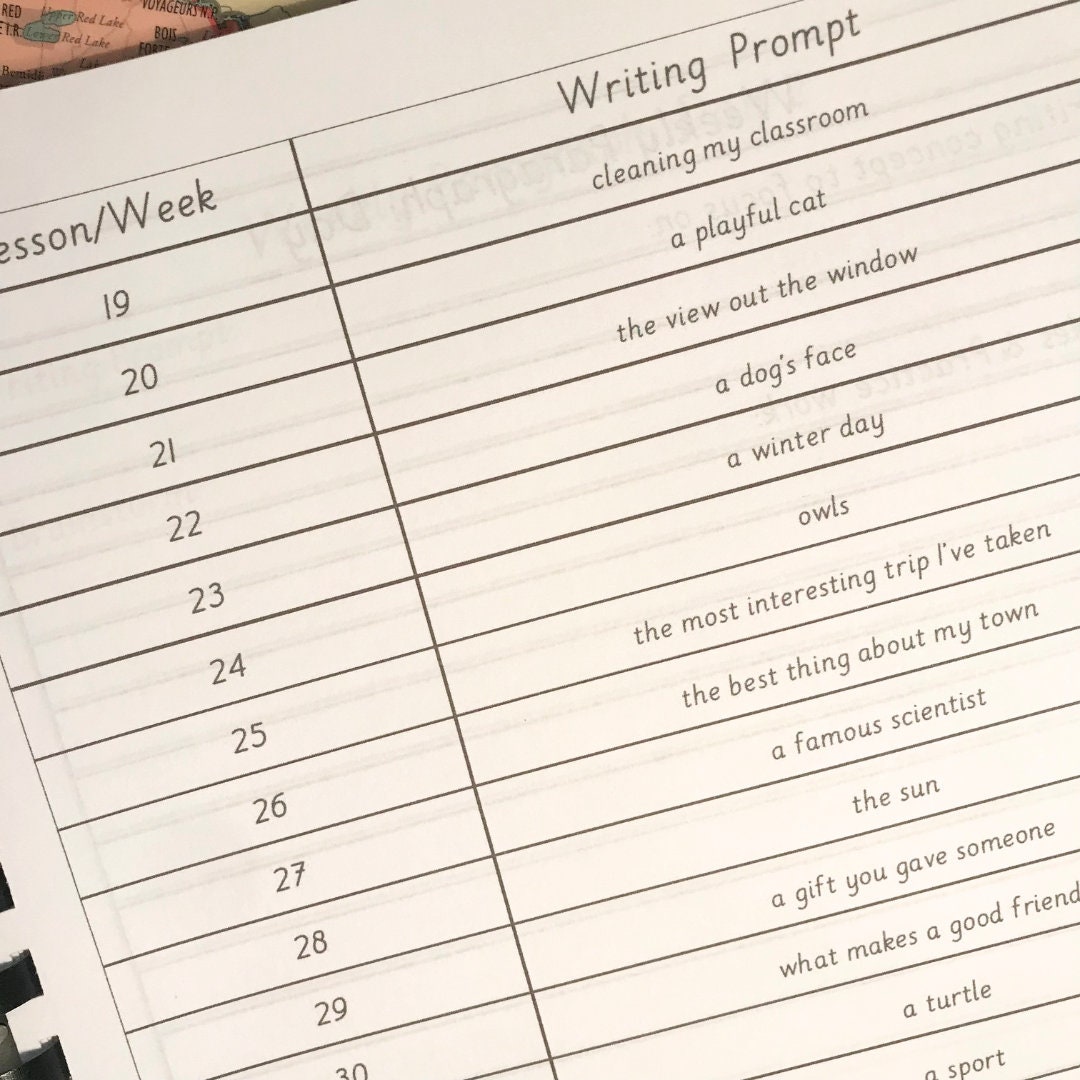 RED
Upper Red Lake
VOYAGEURS N.P.
I.R.
Lower Red Lake
BOIS
Lesson/Week Writing Prompt
19 cleaning my classroom
20 a playful cat
21 the view out the window
22 a dog's face
23 a winter day
24 owls
25 the most interesting trip I've taken
26 the best thing about my town
27 a famous scientist
28 the sun
29 a gift you gave someone
30 what makes a good friend
a turtle
a sport